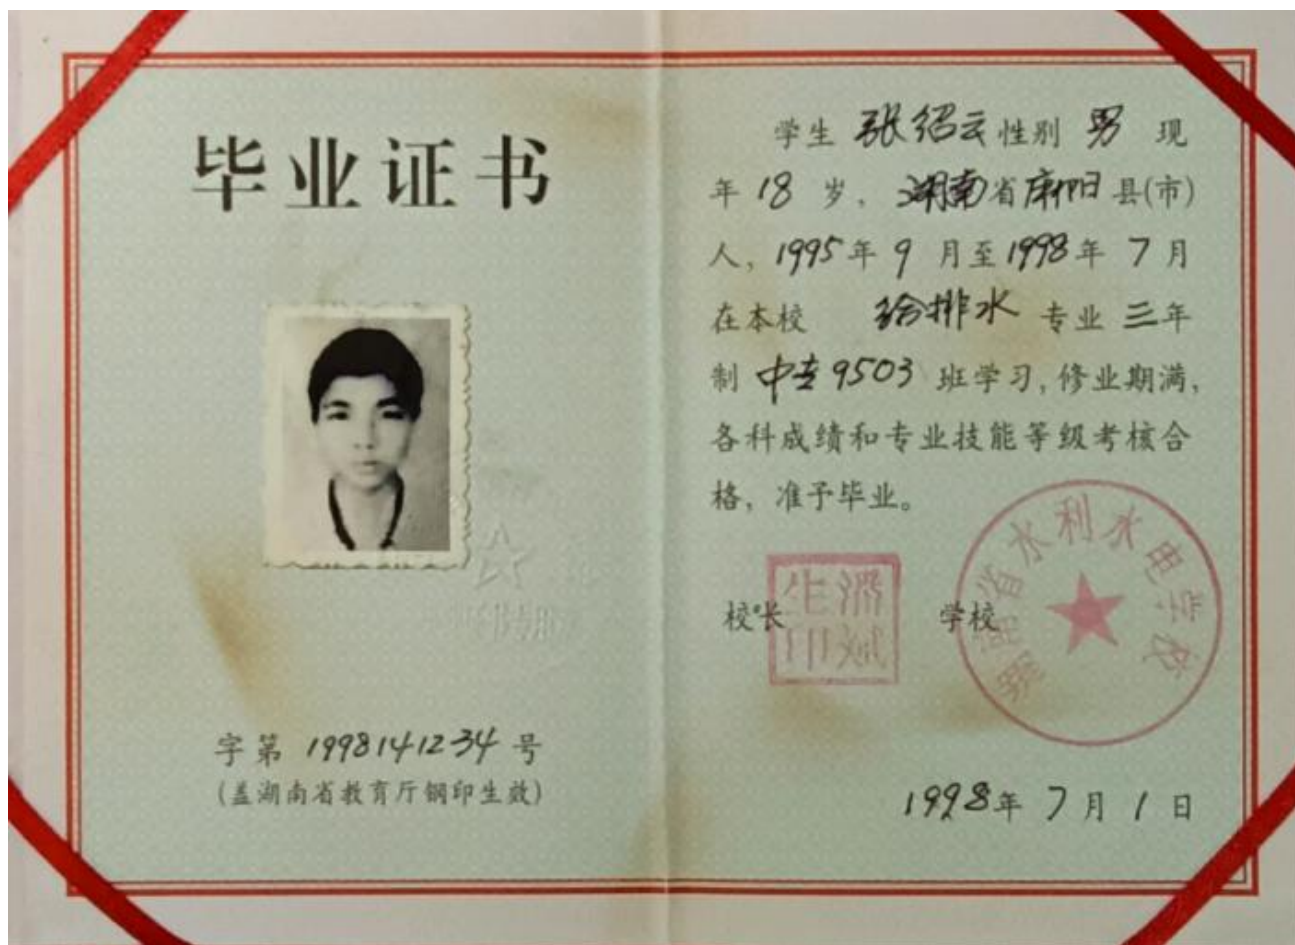 毕业证书
字第 1998141234 号
(盖湖南省教育厅钢印生效)
学生 张绍云 性别 男 现
年 18 岁，湖南省麻阳县(市)
人，1995年 9 月至1998年 7 月
在本校 给排水 专业 三年
制 中专9503 班学习，修业期满，
各科成绩和专业技能等级考核合
格，准予毕业。
校长 学校
湖南省水利水电学校
1998年 7 月 1 日